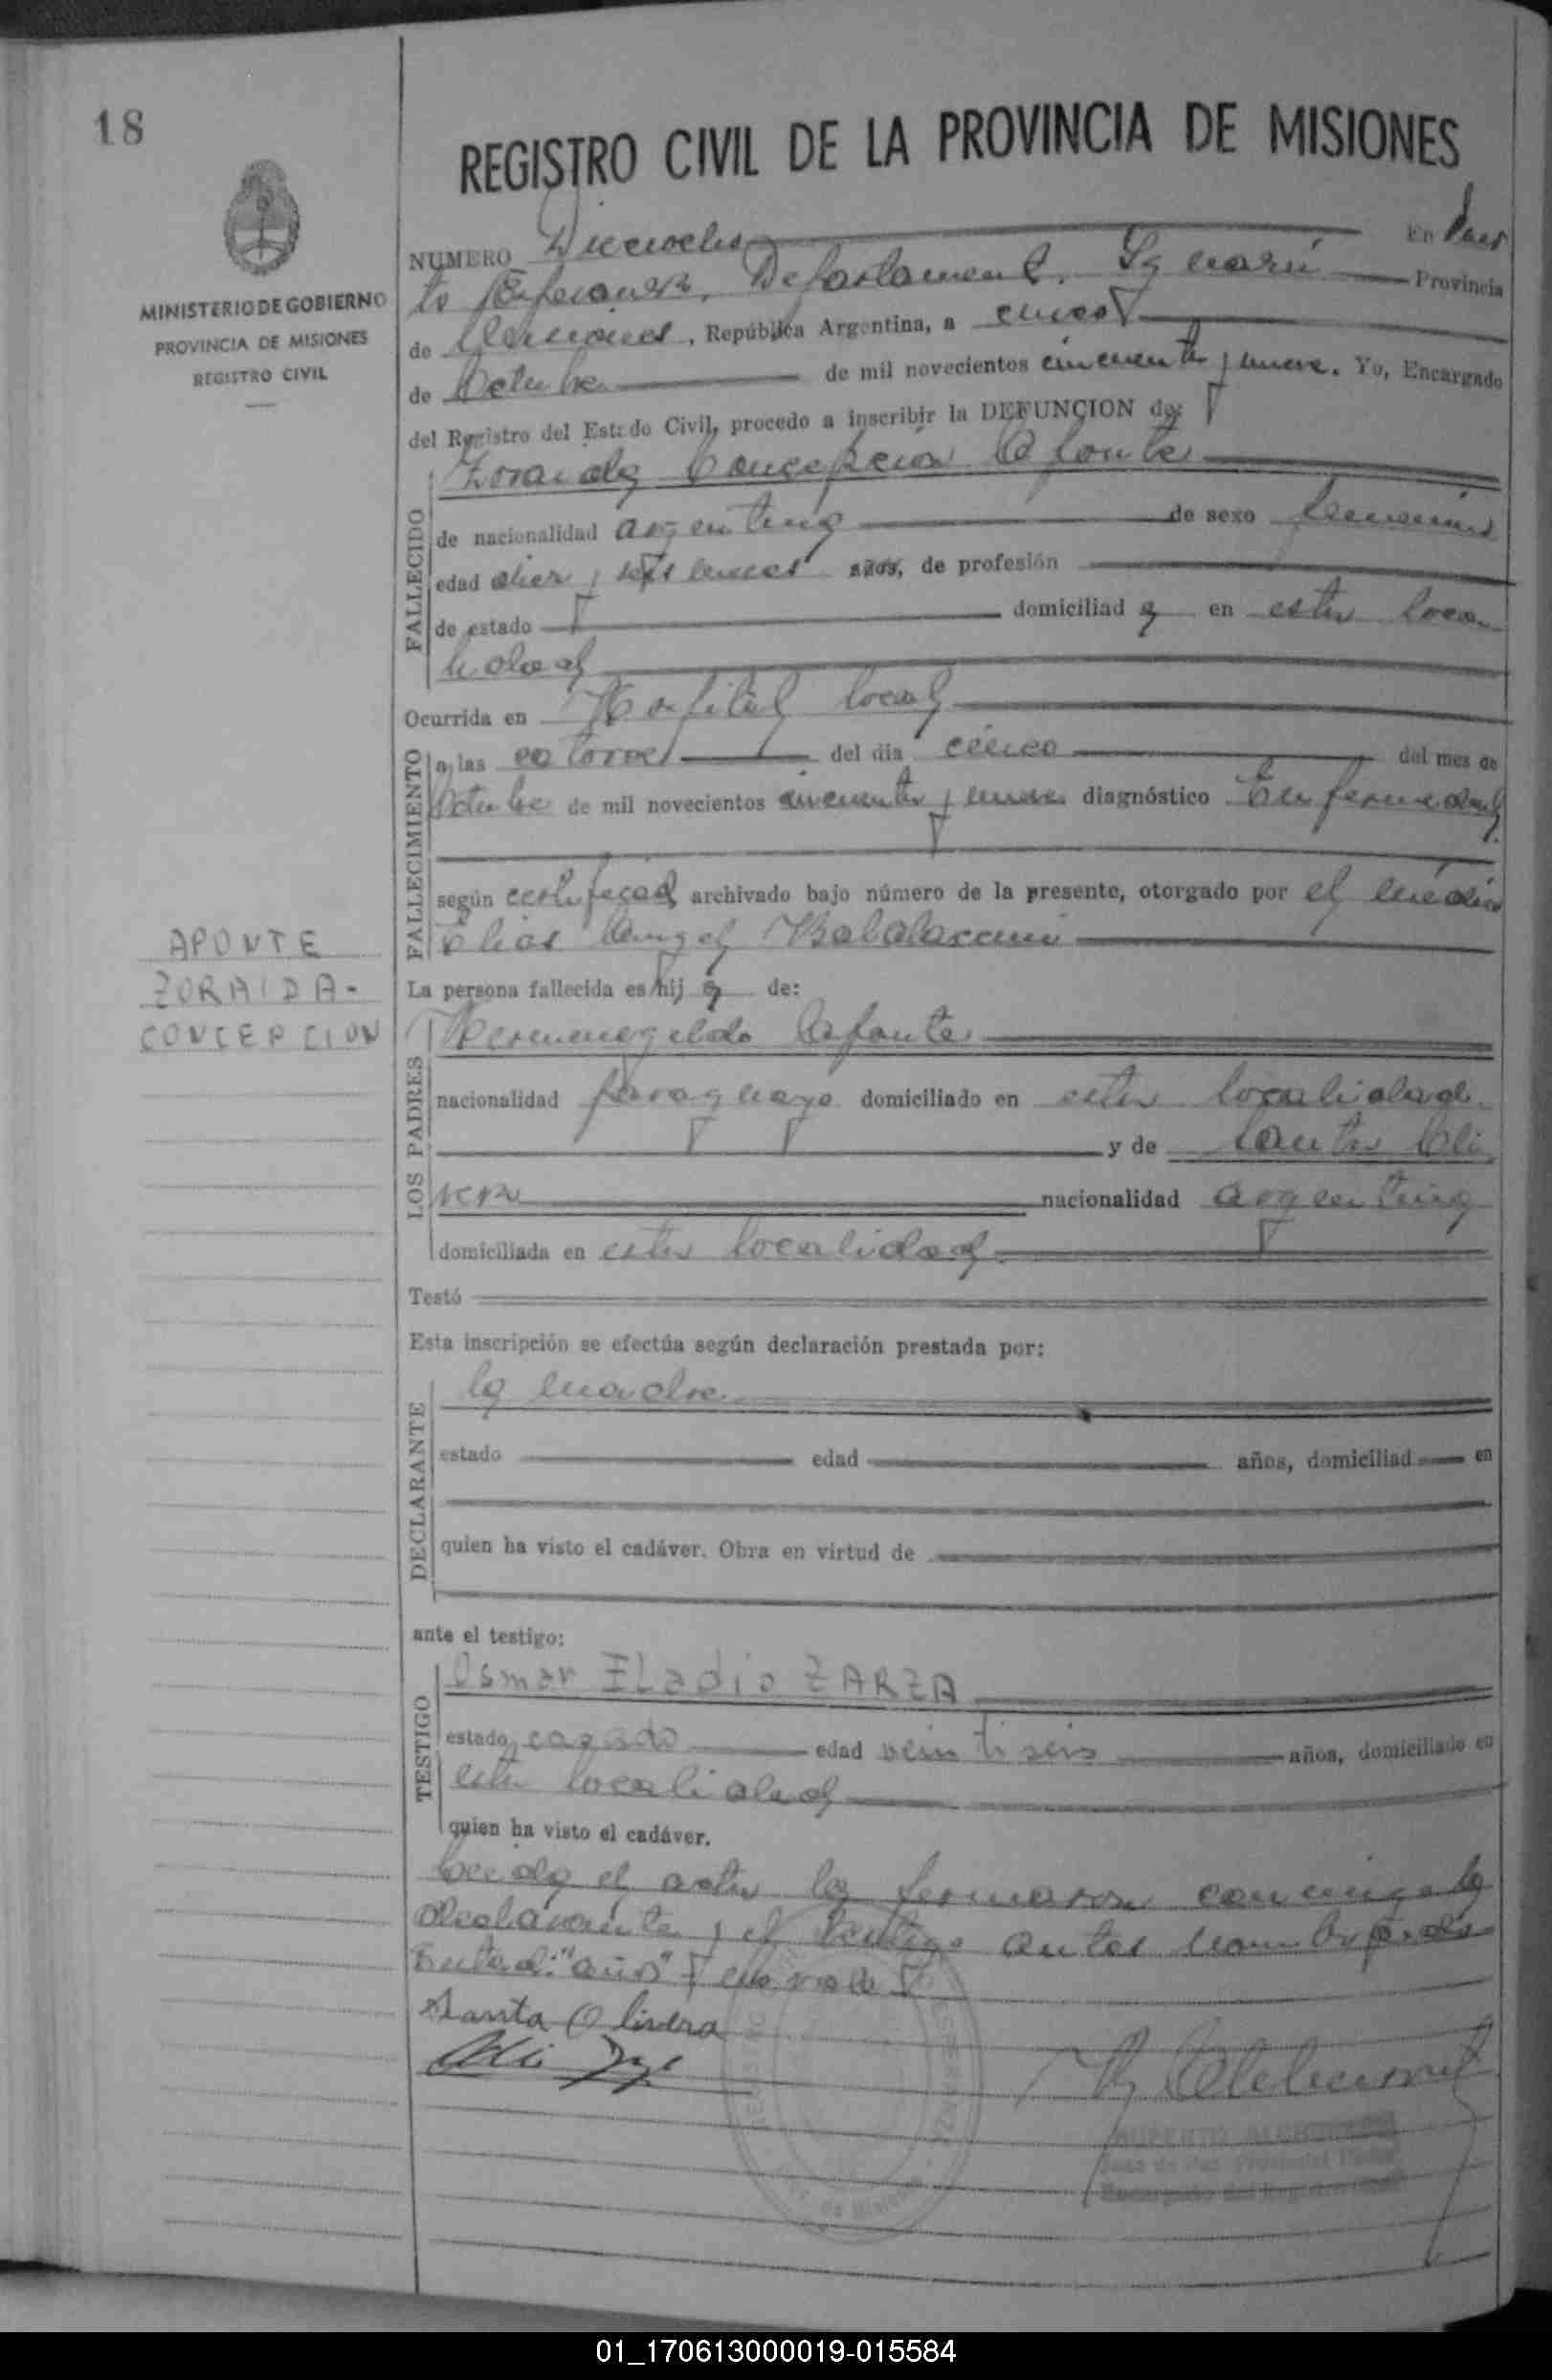 18
REGISTRO CIVIL DE LA PROVINCIA DE MISIONES
MINISTERIO DE GOBIERNO
PROVINCIA DE MISIONES
REGISTRO CIVIL
NUMERO Dieciocho En Puer
to Esperanza, Departamento, Iguazú Provincia
de Misiones, República Argentina, a cinco
de Octubre de mil novecientos cincuenta y nueve. Yo, Encargado
del Registro del Estado Civil, procedo a inscribir la DEFUNCION de:
Zoraida Concepción Aponte
FALLECIDO
de nacionalidad argentina de sexo femenino
edad diez y seis meses años, de profesión
de estado domiciliad a en esta loca
lidad
Ocurrida en Hospital local
FALLECIMIENTO
a las catorce del día cinco del mes de
Octubre de mil novecientos cincuenta y nueve diagnóstico Enfermedad
según certificad archivado bajo número de la presente, otorgado por el médico
Elias Angel
APONTE
ZORAIDA-
CONCEPCION
La persona fallecida es hij a de:
LOS PADRES
Hermenegildo Aponte
nacionalidad paraguayo domiciliado en esta localidad.
y de Santa Oli
vera nacionalidad argentina
domiciliada en esta localidad
Testó
Esta inscripción se efectúa según declaración prestada por:
DECLARANTE
la madre
estado edad años, domiciliad en
quien ha visto el cadáver. Obra en virtud de
ante el testigo:
TESTIGO
Osmar ELadio ZARZA
estado casado edad veintiseis años, domiciliado en
esta localidad
quien ha visto el cadáver.
Leida el acta la firmaron conmigo la
declarante y el testigo antes nombrado
Entad: "años" no vale
Santa Olivera
REGISTRO
01_170613000019-015584